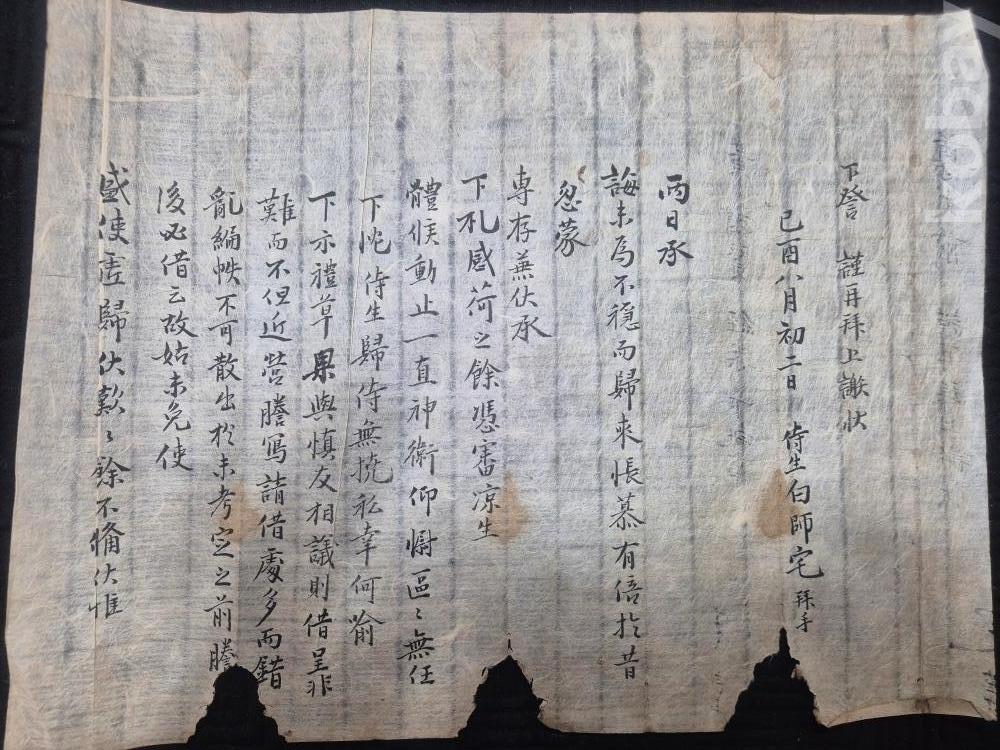 兩日承
誨未為不穩而歸來悵慕有倍扵昔
忽蒙
專存兼伏承
下札感荷之餘憑審凉生
體候動止一直神衛仰慰區〻無任
下忱侍生歸侍無撓私幸何喩
下示禮草果與愼友相議則借呈非
難而不但近營謄寫請借處多而錯
亂編帙不可散出扵未考定之前謄
後必借云故姑未免使
盛使虛歸伏歎〻餘不備伏惟
下詧 謹再拜上謝狀
己酉八月初二日 侍生白師宅 拜手
kobay